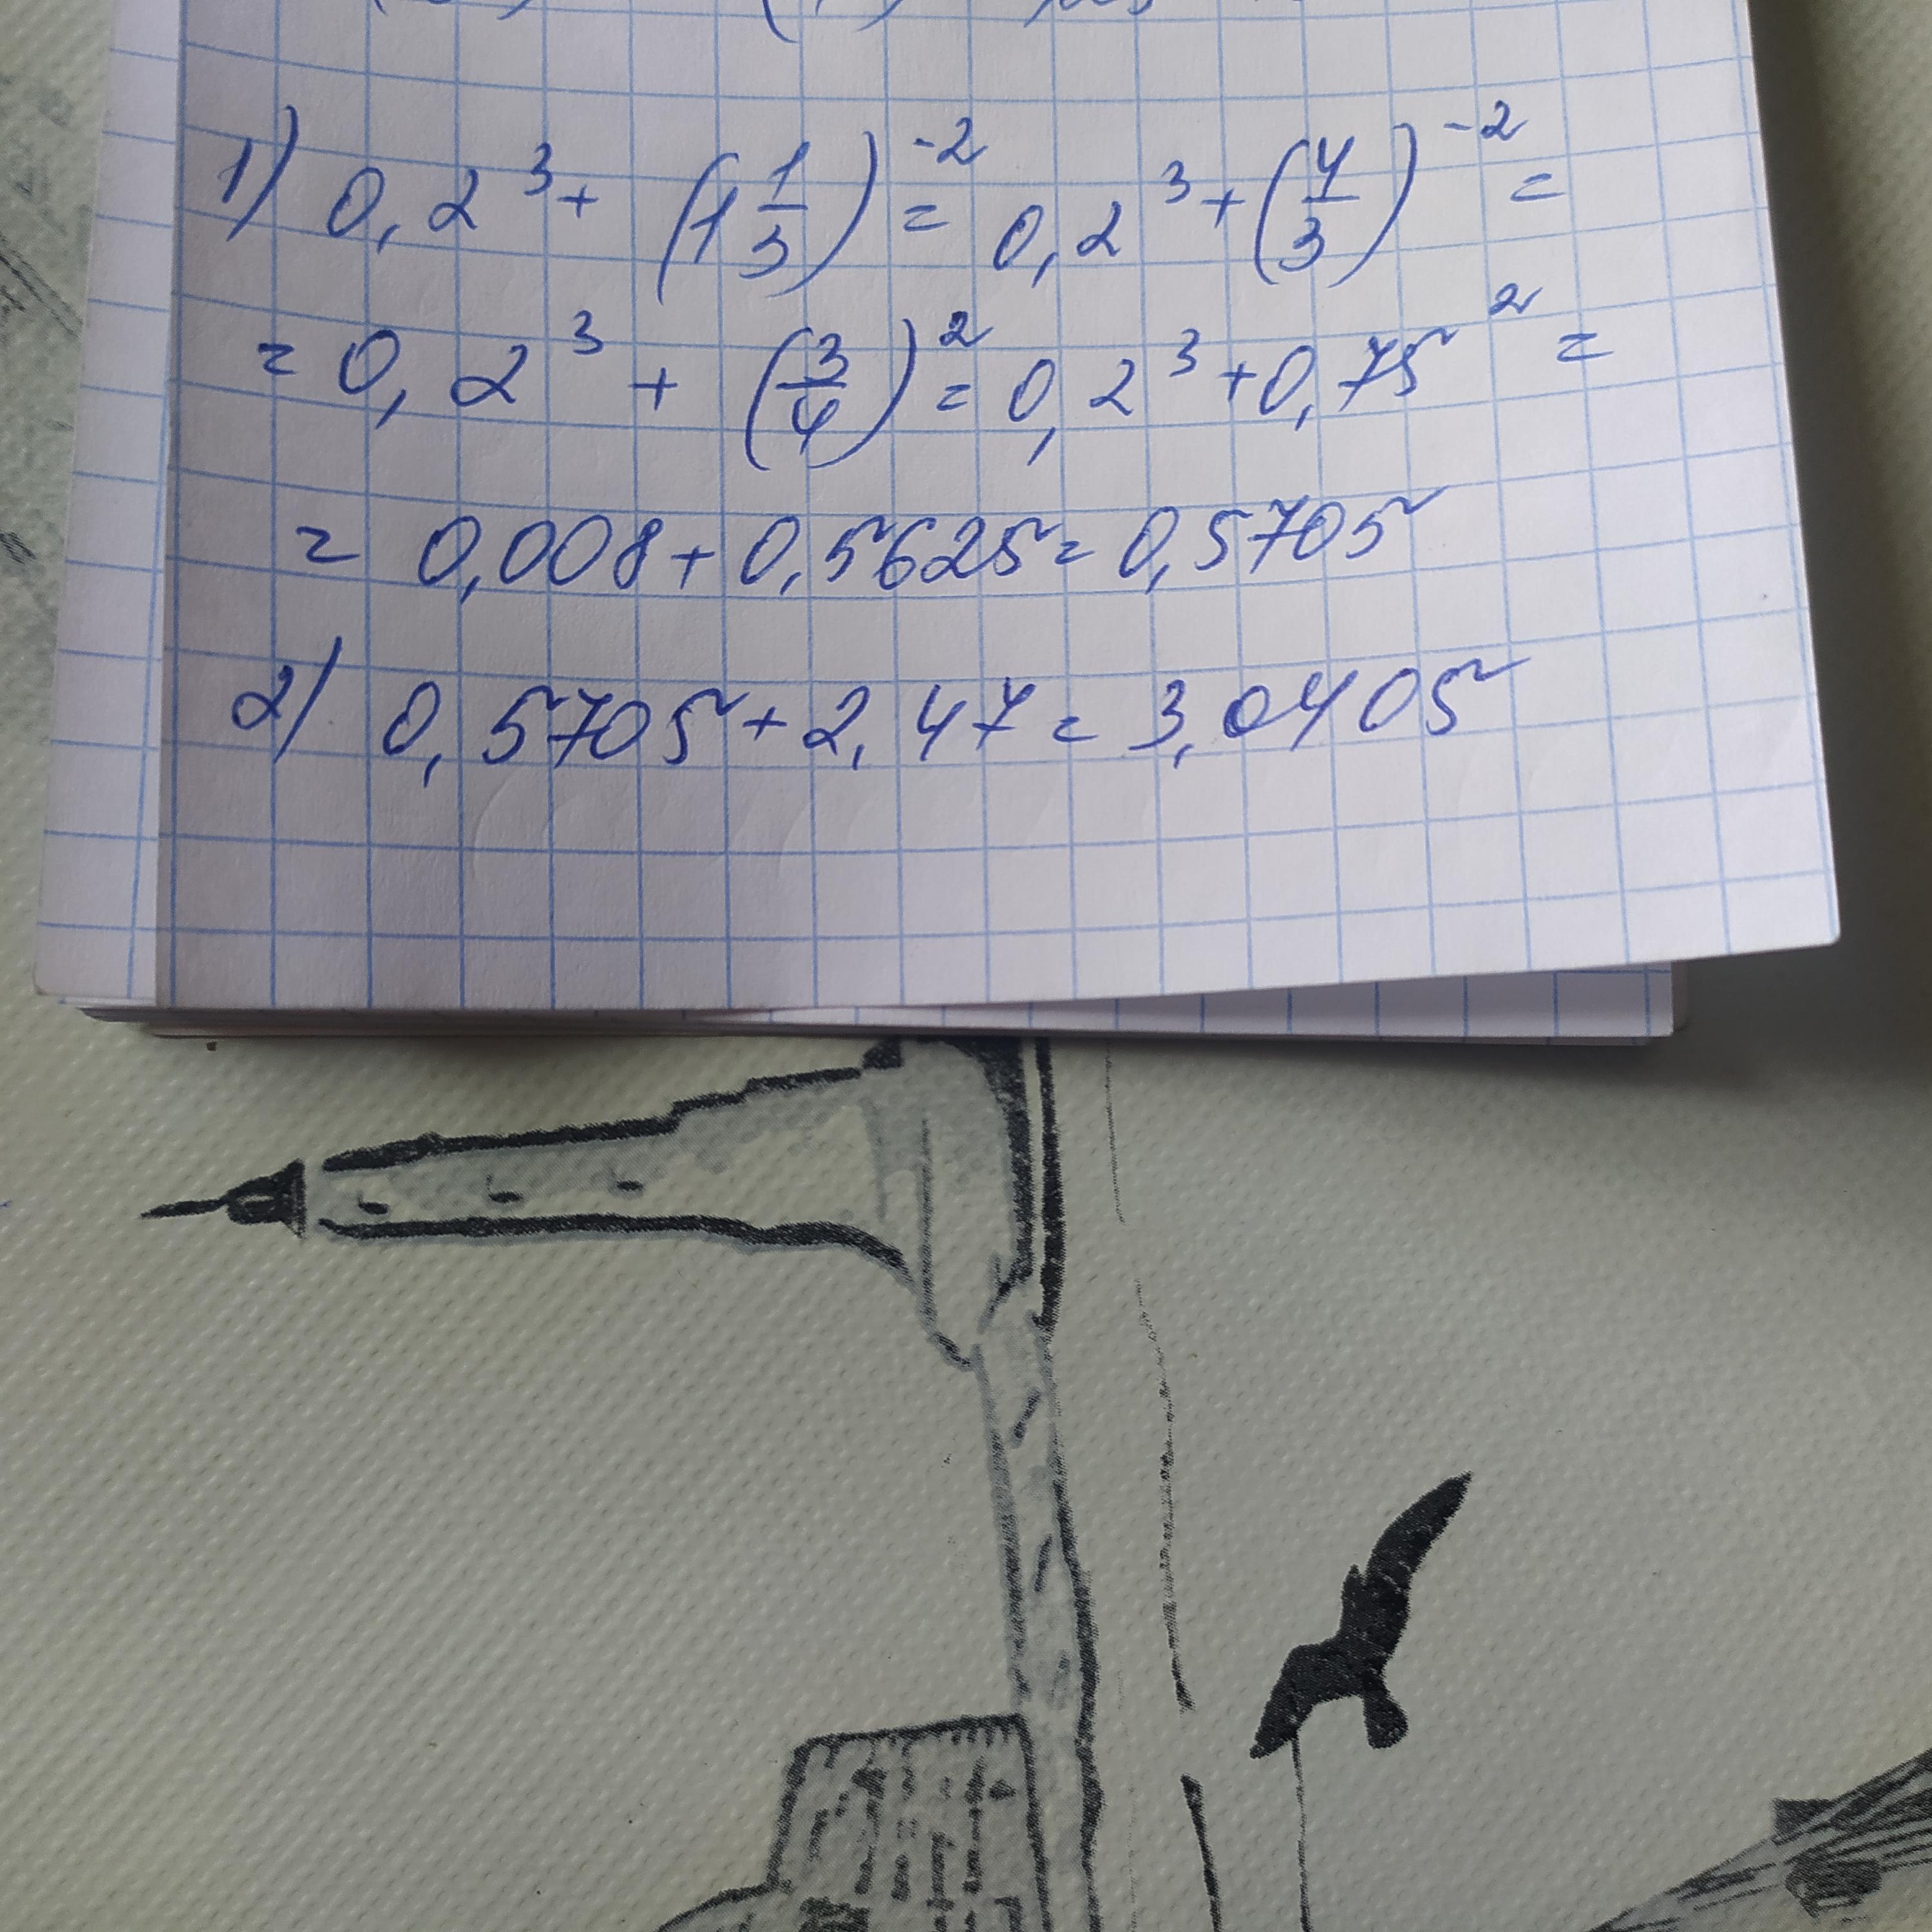 1) 0,2³ + (1 1/3)⁻² = 0,2³ + (4/3)⁻² =
= 0,2³ + (3/4)² = 0,2³ + 0,75² =
= 0,008 + 0,5625 = 0,5705
2) 0,5705 + 2,47 = 3,0405